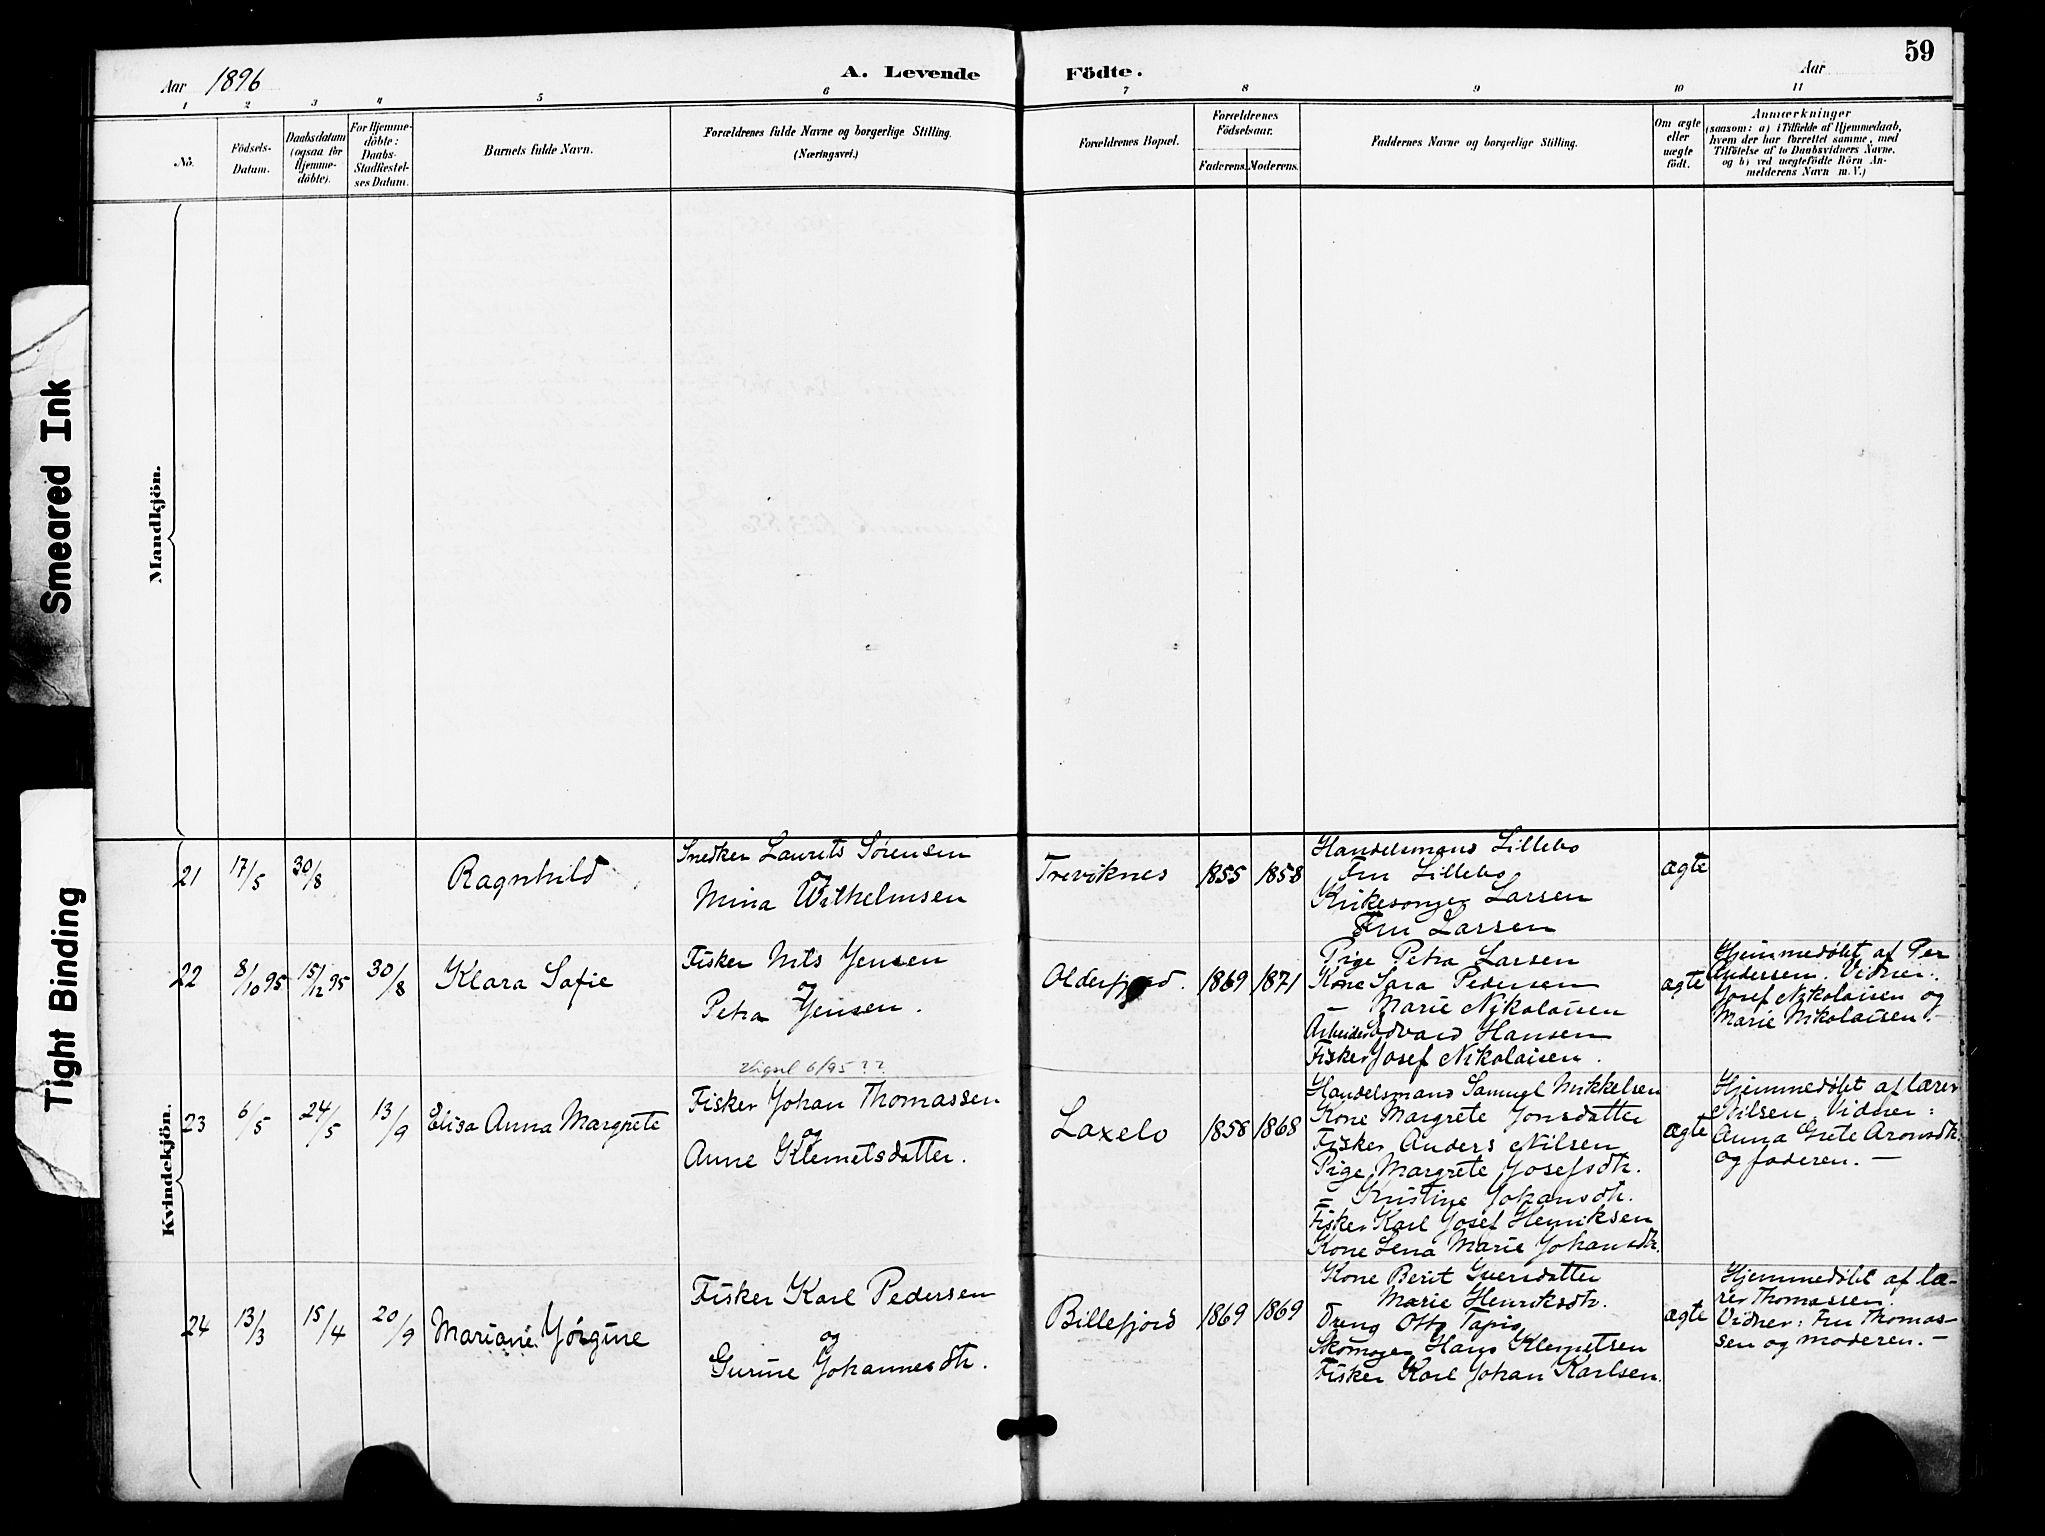 59
Aar 1896
A. Levende Födte.
Aar
1 2 3 4 5 6 7 8 9 10 11
Nö.
Födsels-
Datum.
Daabsdatum
(ogsaa for
Hjemme-
döbte).
For Hjemme-
döbte:
Daabs-
Stadfæstel-
ses Datum.
Barnets fulde Navn.
Forældrenes fulde Navne og borgerlige Stilling.
(Næringsvei.)
Forældrenes Bopæl.
Forældrenes
Födselsaar.
Faderens.
Moderens.
Faddernes Navne og borgerlige Stilling.
Om ægte
eller
uægte
födt.
Anmærkninger
(saasom: a) i Tilfælde af Hjemmedaab,
hvem der har forrettet samme, med
Tilföielse af to Daabsvidners Navne,
og b) ved uægtefödte Börn An-
melderens Navn m. V.)
Smeared Ink
Mandkjön.
Tight Binding
Kvindekjön.
21
17/5
30/8
Ragnhild
Snedker Laurits Sørensen
og
Mina Wilhelmsen
Treviknes
1855
1858
Handelsmand Lillebo
Fru Lillebo
Kirkesanger Larsen
Fru Larsen
ægte
22
8/10 95
15/12 95
30/8
Klara Sofie
Fisker Nils Jensen
og
Petra Jensen.
Olderfjord.
1869
1871
Pige Petra Larsen
Kone Sara Pedersen
— Marie Nikolaisen
Arbeider Edvard Hansen
Fisker Josef Nikolaisen.
ægte
Hjemmedøbt af Per
Andersen. Vidner:
Josef Nikolaisen og
Marie Nikolaisen.—
Vigsel 6/95 ??
23
6/5
24/5
13/9
Elisa Anna Margrete
Fisker Johan Thomassen
og
Anne Klemetsdatter.
Laxelv
1858
1868
Handelsmand Samuel Mikkelsen
Kone Margrete Jonsdatter
Fisker Anders Nilsen
Pige Margrete Josefsdtr.
= Kristine Johansdtr.
Fisker Karl Josef Henriksen
Kone Lena Marie Johansdtr.
ægte
Hjemmedøbt af lærer
Nilsen. Vidner:
Anna Grete Aronsdtr.
og faderen. —
24
13/3
15/4
20/9
Mariane Jørgine
Fisker Karl Pedersen
og
Gurine Johannesdtr.
Billefjord
1869
1869
Kone Berit Iversdatter
Marie Henriksdtr.
Dreng Otto Tapio
Skomager Hans Klemetsen
Fisker Karl Johan Karlsen.
ægte
Hjemmedøbt af læ-
rer Thomassen.
Vidner: Fru Thomas-
sen og moderen. —